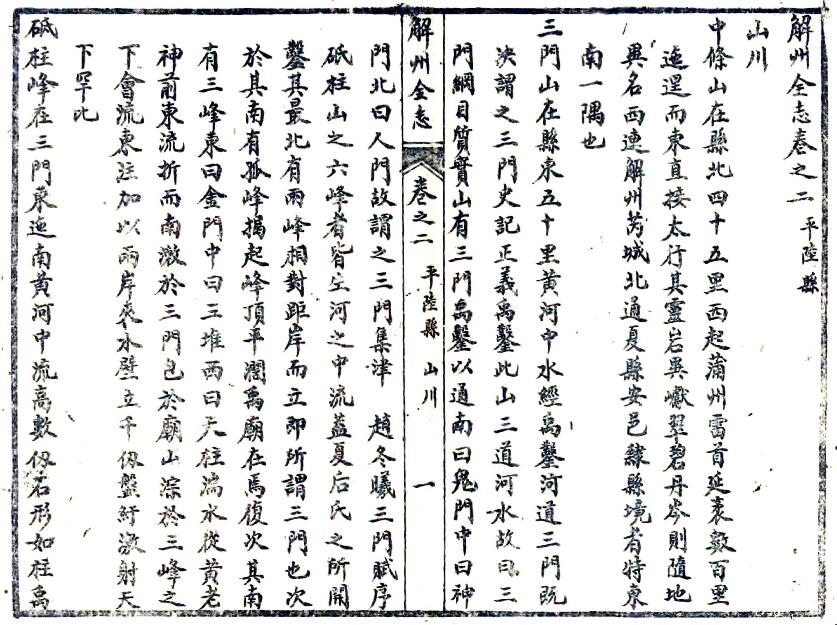 解州全志卷之二 平陸縣
山川
中條山在縣北四十五里西起蒲州雷首延袤數百里
迤邐而東直接太行其靈岩異巘翠碧丹岑則隨地
異名西連解州芮城北通夏縣安邑隸縣境者特東
南一隅也
三門山在縣東五十里黃河中水經禹鑿河道三門既
决謂之三門史記正義禹鑿此山三道河水故曰三
門綱目質實山有三門禹鑿以通南曰鬼門中曰神
解州全志 卷之二 平陸縣 山川 一
門北曰人門故謂之三門集津 趙冬曦三門賦序
砥柱山之六峰者皆生河之中流蓋夏后氏之所開
鑿其最北有兩峰相對距岸而立即所謂三門也次
於其南有孤峰揭起峰頂平濶禹廟在焉復次其南
有三峰東曰金門中曰三堆西曰天柱湍水從黃老
神前東流折而南激於三門包於廟山淙於三峰之
下會流東注加以兩岸夾水壁立千仭盤紆激射天
下罕比
砥柱峰在三門東迤南黃河中流高數仭石形如柱禹